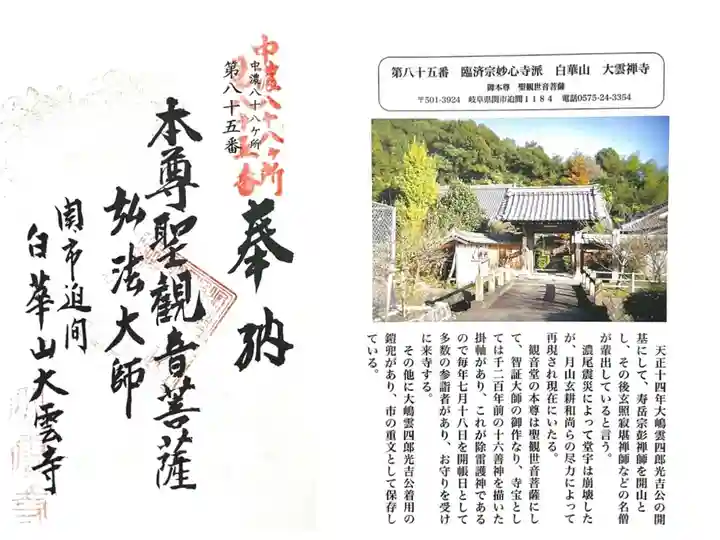 中濃八十八ヶ所
第八十五番
中濃八十八ヶ所
第八十五番
奉納
本尊聖観音菩薩
弘法大師
関市迫間
白華山大雲寺
第八十五番 臨済宗妙心寺派 白華山 大雲禅寺
御本尊 聖観世音菩薩
〒501-3924 岐阜県関市迫間1184 電話0575-24-3354
天正十四年大嶋雲四郎光吉公の開
基にして、寿岳宗彭禅師を開山と
し、その後玄照寂堪禅師などの名僧
が輩出していると言う。
濃尾震災によって堂宇は崩壊した
が、月山玄耕和尚らの尽力によって
再現され現在にいたる。
観音堂の本尊は聖観世音菩薩にし
て、智証大師の御作なり、寺宝とし
ては千二百年前の十六善神を描いた
掛軸があり、これが除雷護神である
ので毎年七月十八日を開帳日として
多数の参詣者があり、お守りを受け
に来寺する。
その他に大嶋雲四郎光吉公着用の
鎧兜があり、市の重文として保存し
ている。